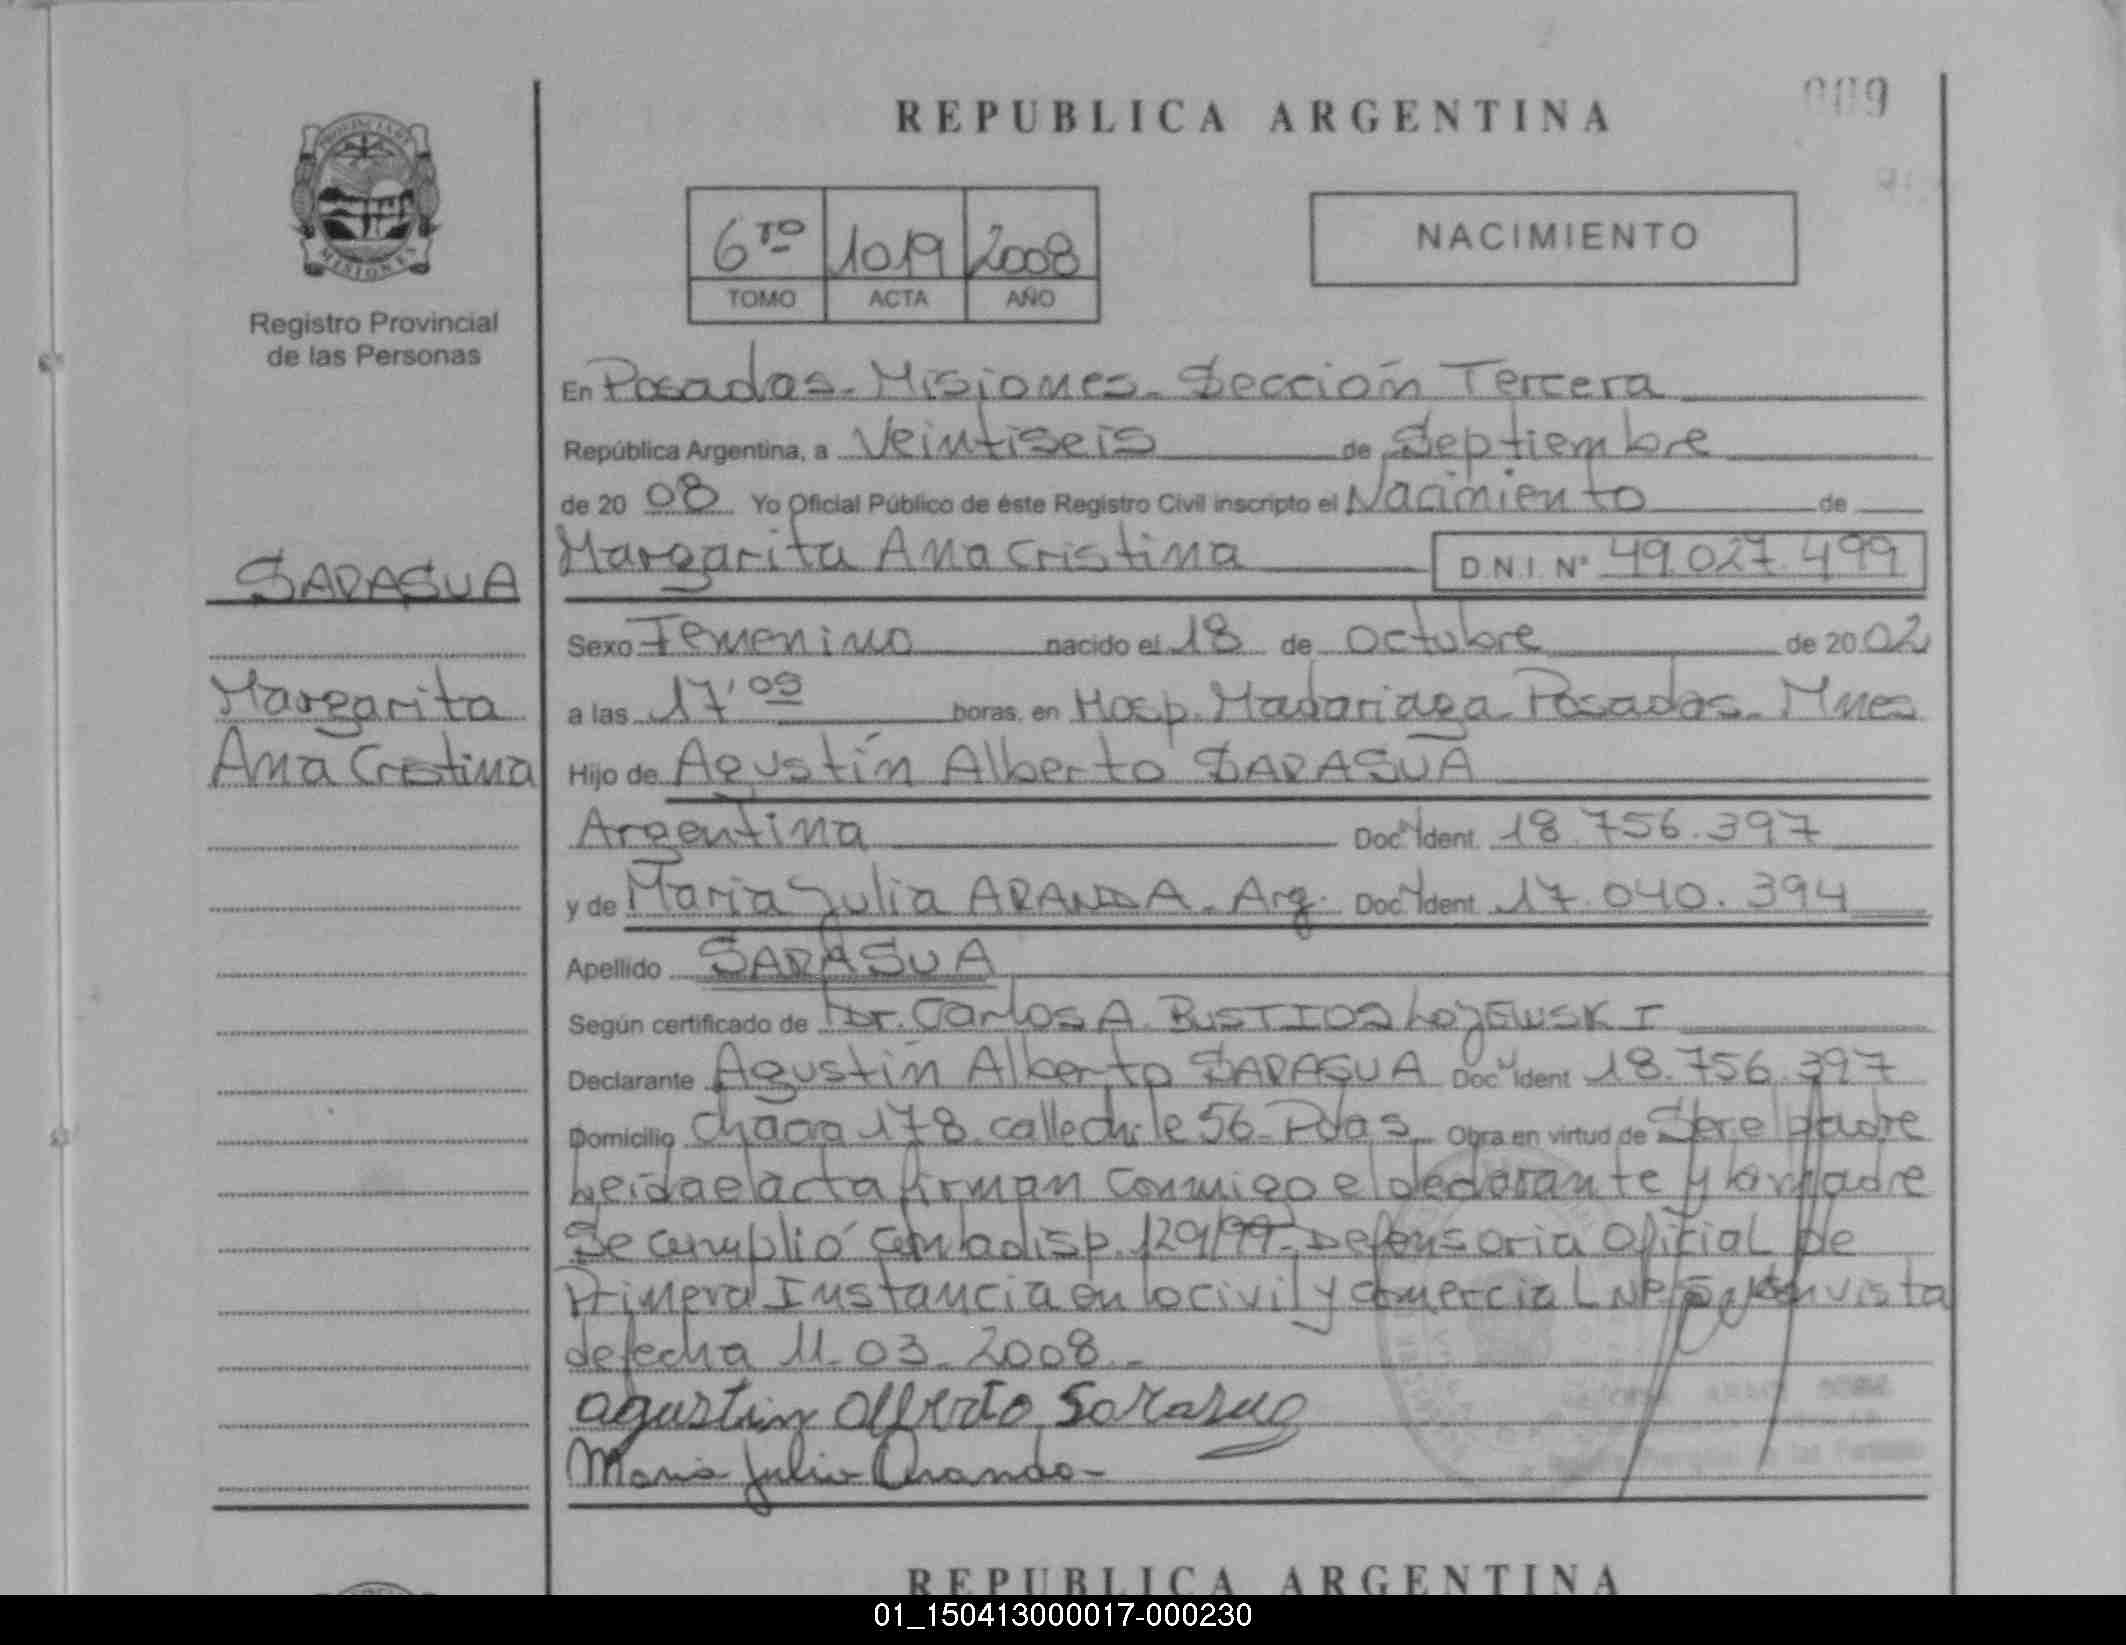 009
REPUBLICA ARGENTINA
PROVINCIA DE
MISIONES
Registro Provincial
de las Personas
6 TO 1019 2008
TOMO ACTA AÑO
NACIMIENTO
En Posadas - Misiones - Sección Tercera
República Argentina, a Veintiseis de Septiembre
de 20 08 Yo Oficial Público de éste Registro Civil inscripto el Nacimiento de
SARASUA
Margarita Ana Cristina D.N.I. Nº 49.027.499
Sexo Femenino nacido el 18 de octubre de 2002
Margarita
a las 17'09 horas, en Hosp. Madariaga - Posadas - Mnes
Ana Cristina
Hijo de Agustín Alberto SARASUA
Argentina Doc. Ident. 18.756.397
y de Maria Julia ARANDA - Arg. Doc. Ident. 17.040.394
Apellido SARASUA
Según certificado de Dr. Carlos A. BUSTIOS LOJEWSKI
Declarante Agustín Alberto SARASUA Doc. Ident 18.756.397
Domicilio chacra 178 calle chile 56 - Pdas Obra en virtud de Ser el padre
Leida el acta firman conmigo el declarante y la madre
Se cumplió con la disp. 129/99 - Defensoria Oficial de
Primera Instancia en lo civil y comercial Nº 5 vista
de fecha 11-03-2008 -
Agustin Alberto Sarasua
Maria Julia Aranda -
REPUBLICA ARGENTINA
01_150413000017-000230